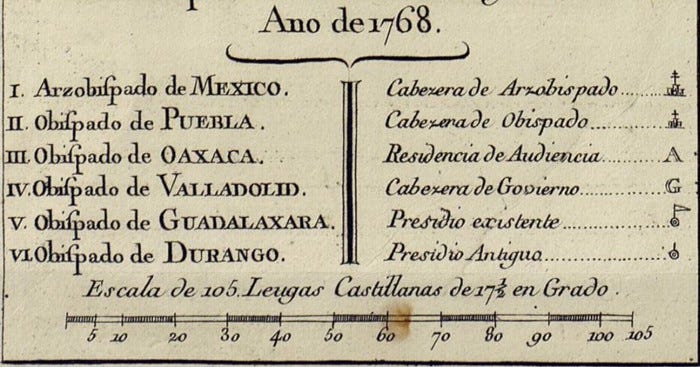 Ano de 1768.
I. Arzobiſpado de MEXICO.
II. Obiſpado de PUEBLA.
III. Obiſpado de OAXACA.
IV. Obiſpado de VALLADOLID.
V. Obiſpado de GUADALAXARA.
VI. Obiſpado de DURANGO.
Cabezera de Arzobispado
Cabezera de Obispado
Residencia de Audiencia A
Cabezera de Govierno G
Presidio existente
Presidio Antiguo
Escala de 105. Leugas Castillanas de 17½ en Grado.
5 10 20 30 40 50 60 70 80 90 100 105